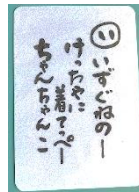 い
いずぐねのー
けっちゃに着てっぺー
ちゃんちゃんこ